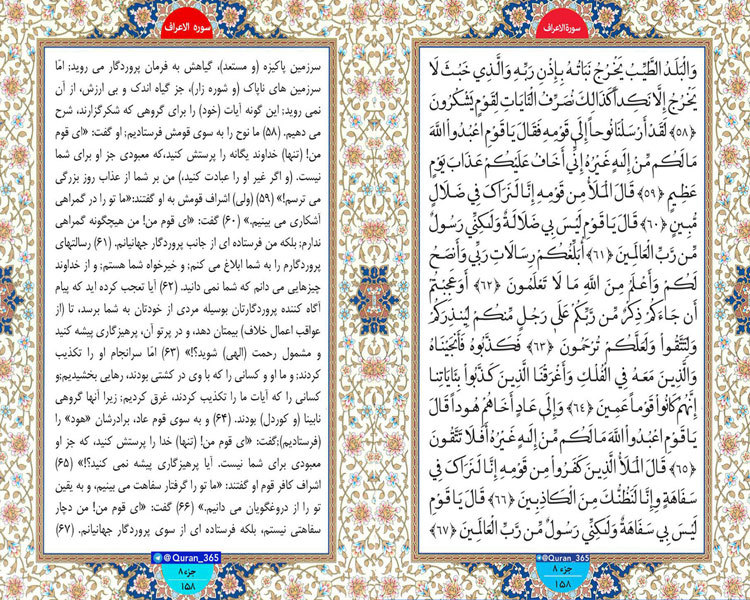 سورة الاعراف
وَالْبَلَدُ الطَّيِّبُ يَخْرُجُ نَبَاتُهُ بِإِذْنِ رَبِّهِ وَالَّذِي خَبُثَ لَا
يَخْرُجُ إِلَّا نَكِداً كَذَالِكَ نُصَرِّفُ الْآيَاتِ لِقَوْمٍ يَشْكُرُونَ
﴿۵۸﴾ لَقَدْ أَرْسَلْنَا نُوحاً إِلَى قَوْمِهِ فَقَالَ يَا قَوْمِ اعْبُدُوا اللَّهَ
مَا لَكُم مِّنْ إِلَهٍ غَيْرُهُ إِنِّي أَخَافُ عَلَيْكُمْ عَذَابَ يَوْمٍ
عَظِيمٍ ﴿۵۹﴾ قَالَ الْمَلَأُ مِن قَوْمِهِ إِنَّا لَنَرَاكَ فِي ضَلَالٍ
مُّبِينٍ ﴿۶۰﴾ قَالَ يَا قَوْمِ لَيْسَ بِي ضَلَالَةٌ وَلَكِنِّي رَسُولٌ
مِّن رَّبِّ الْعَالَمِينَ ﴿۶۱﴾ أُبَلِّغُكُمْ رِسَالَاتِ رَبِّي وَأَنصَحُ
لَكُمْ وَأَعْلَمُ مِنَ اللَّهِ مَا لَا تَعْلَمُونَ ﴿۶۲﴾ أَوَعَجِبْتُمْ
أَن جَاءَكُمْ ذِكْرٌ مِّن رَّبِّكُمْ عَلَى رَجُلٍ مِّنكُمْ لِيُنذِرَكُمْ
وَلِتَتَّقُوا وَلَعَلَّكُمْ تُرْحَمُونَ ﴿۶۳﴾ فَكَذَّبُوهُ فَأَنجَيْنَاهُ
وَالَّذِينَ مَعَهُ فِي الْفُلْكِ وَأَغْرَقْنَا الَّذِينَ كَذَّبُوا بِآيَاتِنَا
إِنَّهُمْ كَانُوا قَوْماً عَمِينَ ﴿۶۴﴾ وَإِلَى عَادٍ أَخَاهُمْ هُوداً قَالَ
يَا قَوْمِ اعْبُدُوا اللَّهَ مَا لَكُم مِّنْ إِلَهٍ غَيْرُهُ أَفَلَا تَتَّقُونَ
﴿۶۵﴾ قَالَ الْمَلَأُ الَّذِينَ كَفَرُوا مِن قَوْمِهِ إِنَّا لَنَرَاكَ فِي
سَفَاهَةٍ وَإِنَّا لَنَظُنُّكَ مِنَ الْكَاذِبِينَ ﴿۶۶﴾ قَالَ يَا قَوْمِ
لَيْسَ بِي سَفَاهَةٌ وَلَكِنِّي رَسُولٌ مِّن رَّبِّ الْعَالَمِينَ ﴿۶۷﴾
@Quran_365
جزء ۸
۱۵۸
سوره الاعراف
سرزمین پاکیزه (و مستعد)، گیاهش به فرمان پروردگار می روید؛ امّا
سرزمین های ناپاک (و شوره زار)، جز گیاه اندک و بی ارزش، از آن
نمی روید؛ این گونه آیات (خود) را برای گروهی که شکرگزارند، شرح
می دهیم. (۵۸) ما نوح را به سوی قومش فرستادیم؛ او گفت: «ای قوم
من! (تنها) خداوند یگانه را پرستش کنید،که معبودی جز او برای شما
نیست. (و اگر غیر او را عبادت کنید،) من بر شما از عذاب روز بزرگی
می ترسم!» (۵۹) (ولی) اشراف قومش به او گفتند:«ما تو را در گمراهی
آشکاری می بینیم.» (۶۰) گفت: «ای قوم من! من هیچگونه گمراهی
ندارم؛ بلکه من فرستاده ای از جانب پروردگار جهانیانم. (۶۱) رسالتهای
پروردگارم را به شما ابلاغ می کنم؛ و خیرخواه شما هستم؛ و از خداوند
چیزهایی می دانم که شما نمی دانید. (۶۲) آیا تعجب کرده اید که پیام
آگاه کننده پروردگارتان بوسیله مردی از خودتان به شما برسد، تا (از
عواقب اعمال خلاف) بیمتان دهد، و در پرتو آن، پرهیزگاری پیشه کنید
و مشمول رحمت (الهی) شوید؟!» (۶۳) امّا سرانجام او را تکذیب
کردند؛ و ما او و کسانی را که با وی در کشتی بودند، رهایی بخشیدیم;و
کسانی را که آیات ما را تکذیب کردند، غرق کردیم؛ زیرا آنها گروهی
نابینا (و کوردل) بودند. (۶۴) و به سوی قوم عاد، برادرشان «هود» را
(فرستادیم);گفت: «ای قوم من! (تنها) خدا را پرستش کنید، که جز او
معبودی برای شما نیست. آیا پرهیزگاری پیشه نمی کنید؟!» (۶۵)
اشراف کافر قوم او گفتند: «ما تو را گرفتار سفاهت می بینیم، و به یقین
تو را از دروغگویان می دانیم.» (۶۶) گفت: «ای قوم من! من دچار
سفاهتی نیستم، بلکه فرستاده ای از سوی پروردگار جهانیانم. (۶۷)
@Quran_365
جزء ۸
۱۵۸